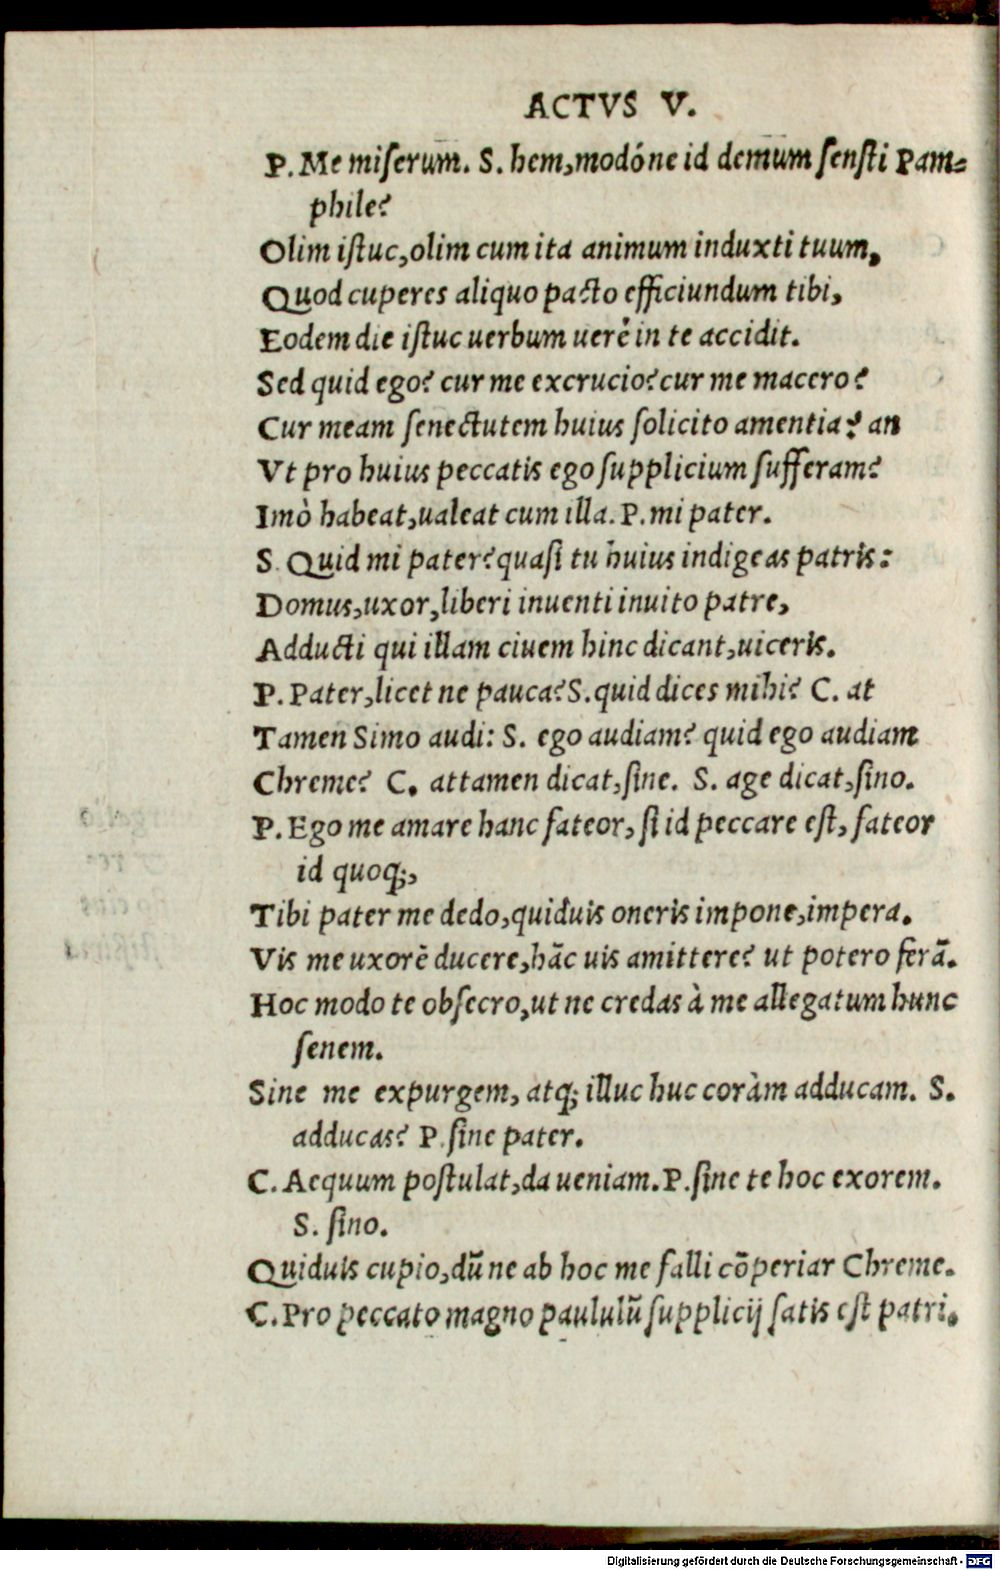 ACTVS V.
P. Me miserum. S. hem, modóne id demum sensti Pam-
phile?
Olim istuc, olim cum ita animum induxti tuum,
Quod cuperes aliquo pacto efficiundum tibi,
Eodem die istuc uerbum uerè in te accidit.
Sed quid ego? cur me excrucio? cur me macero?
Cur meam senectutem huius solicito amentia? an
Vt pro huius peccatis ego supplicium sufferam?
Imò habeat, ualeat cum illa. P. mi pater.
S. Quid mi pater? quasi tu huius indigeas patris:
Domus, uxor, liberi inuenti inuito patre,
Adducti qui illam ciuem hinc dicant, uiceris.
P. Pater, licet ne pauca? S. quid dices mihi? C. at
Tamen Simo audi: S. ego audiam? quid ego audiam
Chreme? C. attamen dicat, sine. S. age dicat, sino.
P. Ego me amare hanc fateor, si id peccare est, fateor
id quoq;,
Tibi pater me dedo, quiduis oneris impone, impera.
Vis me uxorē ducere, hāc uis amittere? ut potero ferā.
Hoc modo te obsecro, ut ne credas à me allegatum hunc
senem.
Sine me expurgem, atq; illuc huc coràm adducam. S.
adducas? P. sine pater.
C. Aequum postulat, da ueniam. P. sine te hoc exorem.
S. sino.
Quiduis cupio, dū ne ab hoc me falli cōperiar Chreme.
C. Pro peccato magno paululū supplicij satis est patri.
Digitalisierung gefördert durch die Deutsche Forschungsgemeinschaft - DFG